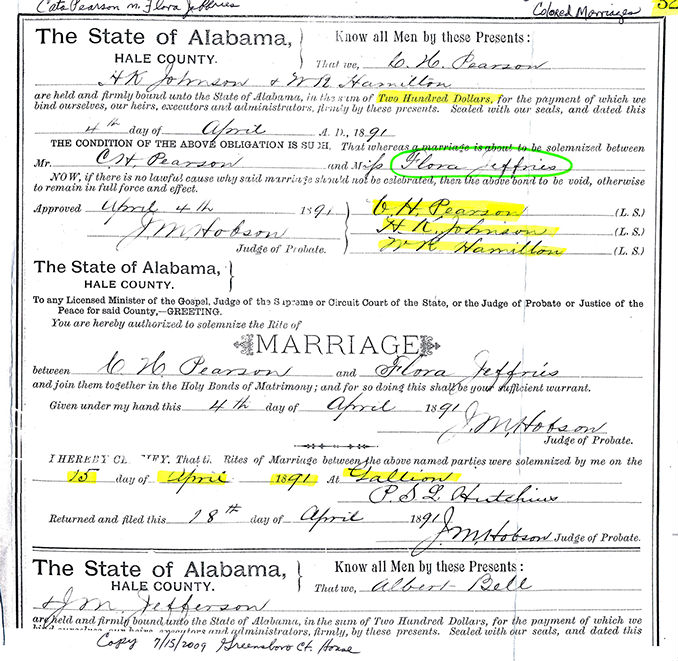 Cato Pearson m. Flora Jeffries Colored Marriages 52
The State of Alabama, Know all Men by these Presents:
HALE COUNTY. That we, C. H. Pearson
H K Johnson & W R Hamilton
are held and firmly bound unto the State of Alabama, in the sum of Two Hundred Dollars, for the payment of which we
bind ourselves, our heirs, executors and administrators, firmly by these presents. Sealed with our seals, and dated this
4th day of April A. D., 1891
THE CONDITION OF THE ABOVE OBLIGATION IS SUCH, That whereas a marriage is about to be solemnized between
Mr. C. H Pearson and Miss Flora Jeffries
NOW, if there is no lawful cause why said marriage should not be celebrated, then the above bond to be void, otherwise
to remain in full force and effect.
Approved April 4th 1891 C. H. Pearson (L. S.)
J. M. Hobson H. K. Johnson (L. S.)
Judge of Probate. W R Hamilton (L. S.)
The State of Alabama,
HALE COUNTY.
To any Licensed Minister of the Gospel, Judge of the Supreme or Circuit Court of the State, or the Judge of Probate or Justice of the
Peace for said County,—GREETING.
You are hereby authorized to solemnize the Rite of
MARRIAGE
between C. H. Pearson and Flora Jeffries
and join them together in the Holy Bonds of Matrimony; and for so doing this shall be your sufficient warrant.
Given under my hand this 4th day of April 1891
J. M. Hobson
Judge of Probate.
I HEREBY That Rites of Marriage between the above named parties were solemnized by me on the
15 day of April 1891 At Gallion
Returned and filed this 18th day of April 1891 J. M. Hobson Judge of Probate.
The State of Alabama, Know all Men by these Presents:
HALE COUNTY. That we, Albert Bell
& J. M. Jefferson
are held and firmly bound unto the State of Alabama, in the sum of Two Hundred Dollars, for the payment of which we
bind ourselves, our heirs, executors and administrators, firmly, by these presents. Sealed with our seals, and dated this
Copy 7/15/2009 Greensboro Ct. House